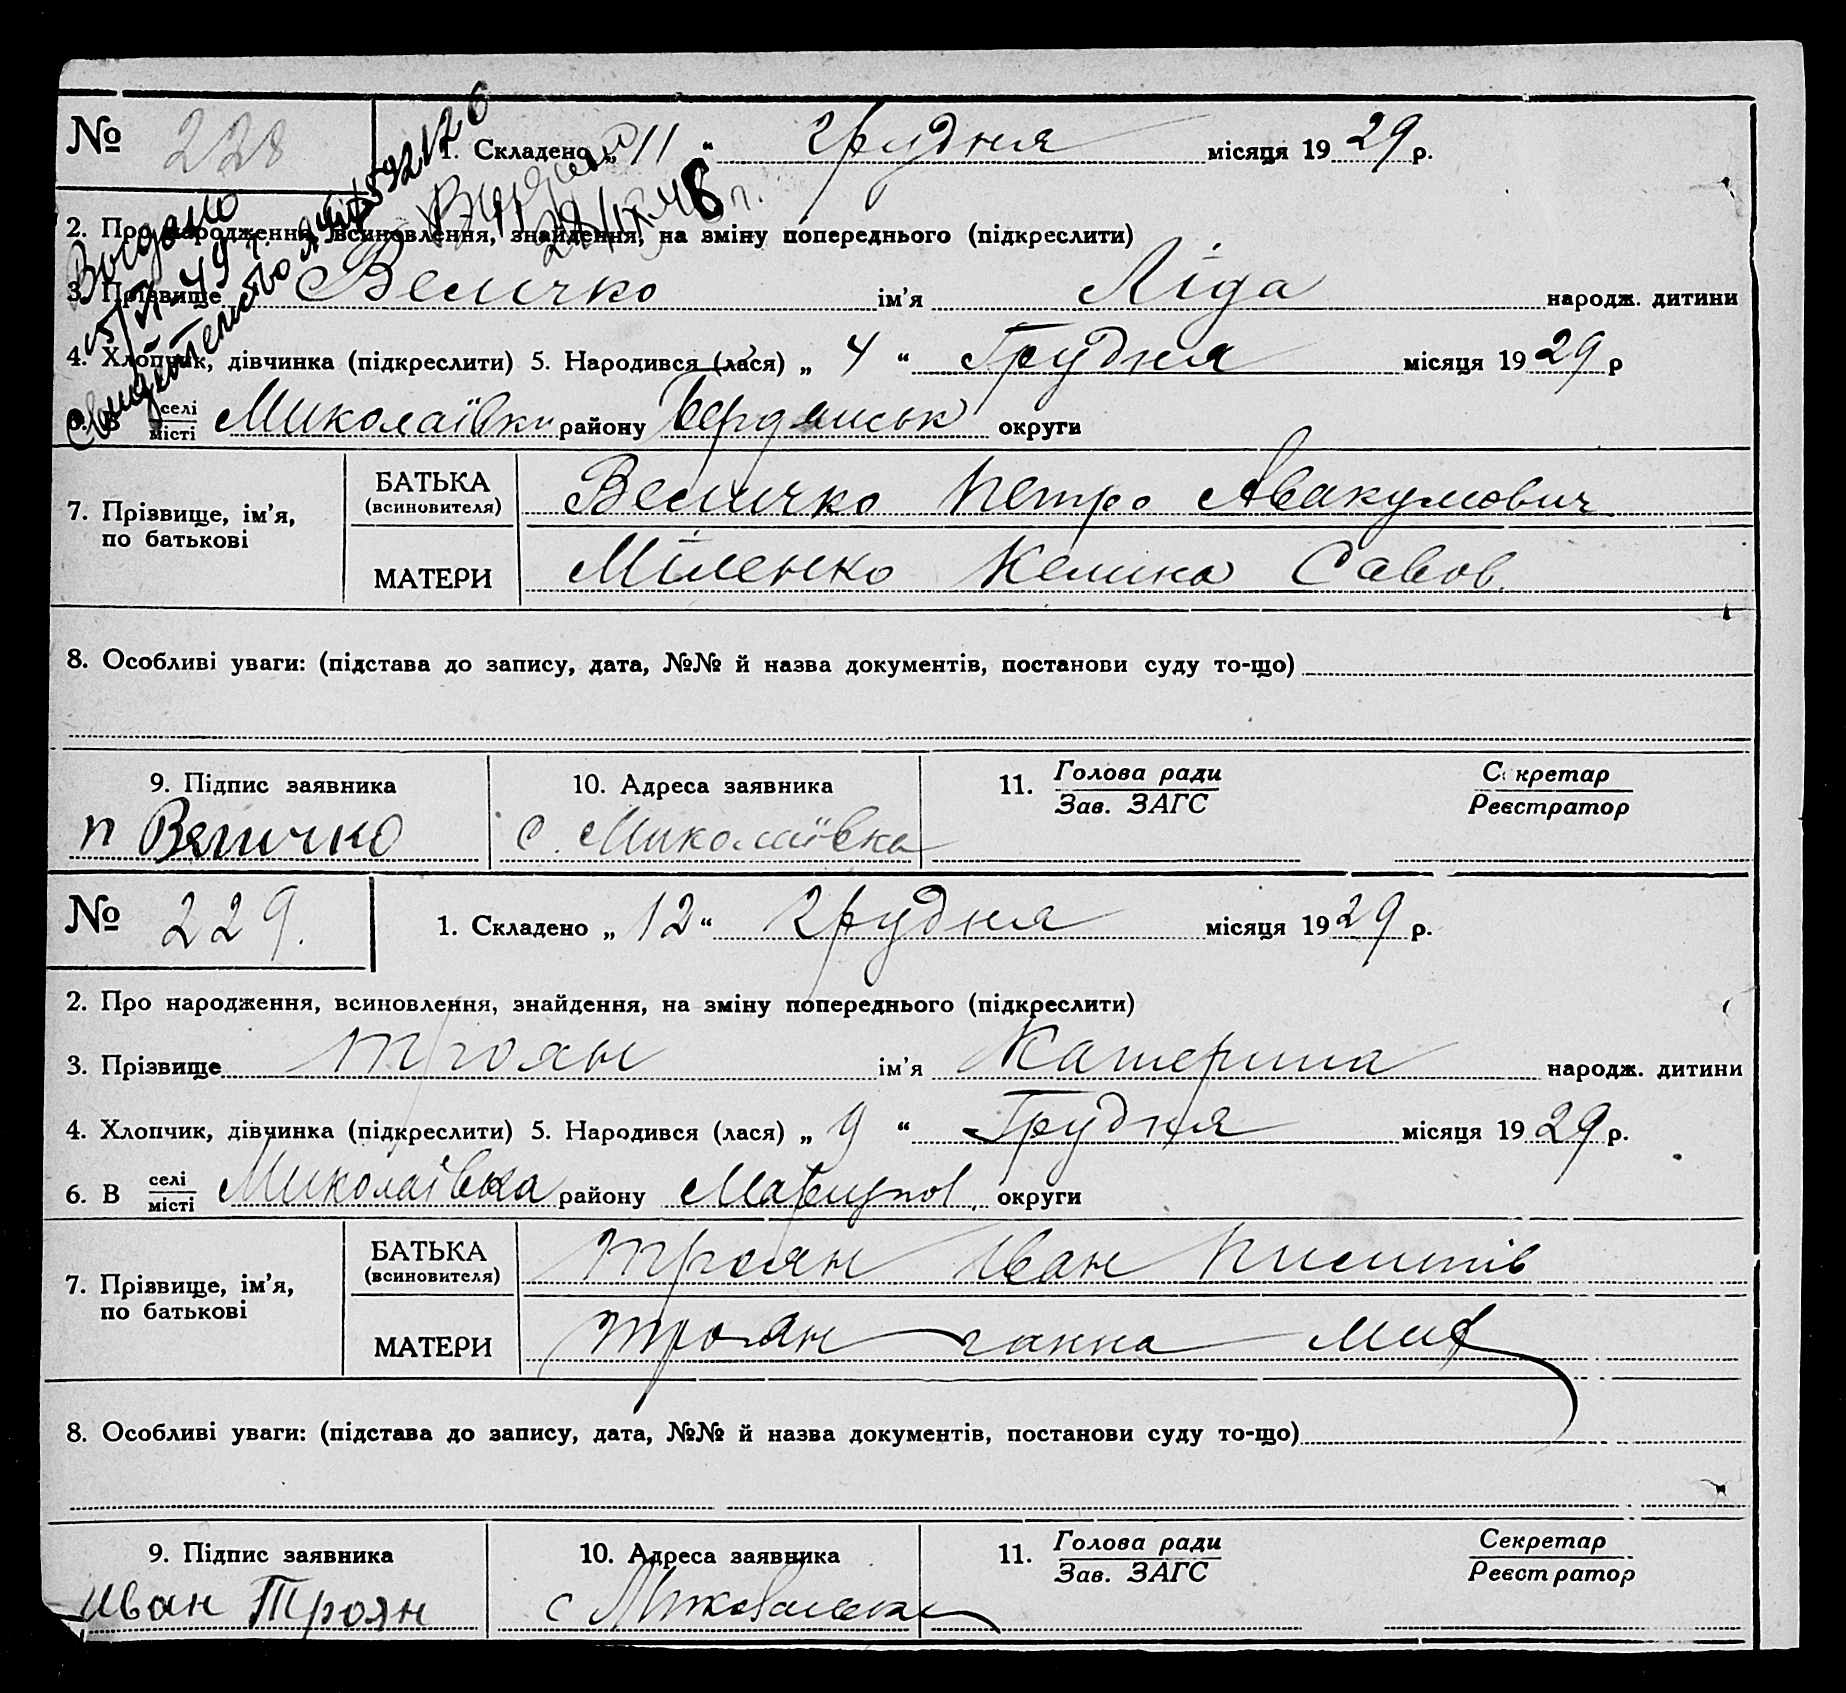 № 228
1. Складено „ 11 “ грудня місяця 19 29 р.
2. Про народження, всиновлення, знайдення, на зміну попереднього (підкреслити)
3. Прізвище Величко ім’я Ліда народж. дитини
4. Хлопчик, дівчинка (підкреслити) 5. Народився (лася) „ 4 “ Грудня місяця 19 29 р
6. В селі місті Миколаївки району округи
7. Прізвище, ім’я, по батькові
БАТЬКА (всиновителя) Величко Петро Авакумович
МАТЕРИ Міленко Келина Савов.
8. Особливі уваги: (підстава до запису, дата, №№ й назва документів, постанови суду то-що)
9. Підпис заявника
п Величко
10. Адреса заявника
с. Миколаївка
11. Голова ради
Зав. ЗАГС
Секретар
Реєстратор
№ 229.
1. Складено „ 12 “ грудня місяця 19 29 р.
2. Про народження, всиновлення, знайдення, на зміну попереднього (підкреслити)
3. Прізвище Троян ім’я Катерина народж. дитини
4. Хлопчик, дівчинка (підкреслити) 5. Народився (лася) „ 9 “ Грудня місяця 19 29 р.
6. В селі місті Миколаївка району округи
7. Прізвище, ім’я, по батькові
БАТЬКА (всиновителя) Троян Иван
МАТЕРИ Троян ганна
8. Особливі уваги: (підстава до запису, дата, №№ й назва документів, постанови суду то-що)
9. Підпис заявника
Иван Троян
10. Адреса заявника
с
11. Голова ради
Зав. ЗАГС
Секретар
Реєстратор